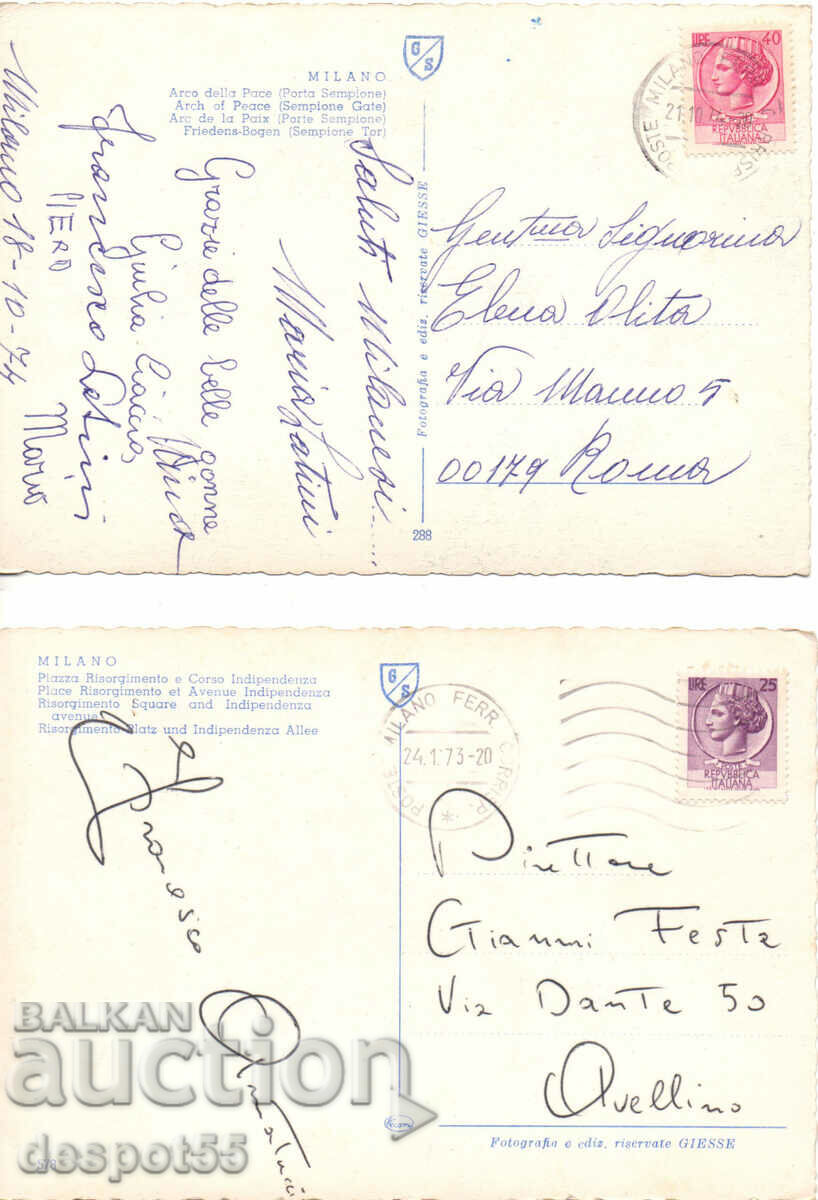 MILANO
Arco della Pace (Porta Sempione)
Arch of Peace (Sempione Gate)
Arc de la Paix (Porte Sempione)
Friedens-Bogen (Sempione Tor)
G S
LIRE 40
POSTE
REPVBBLICA
ITALIANA
POSTE MILANO
21.10
Saluti Milanesi
Maria Latini
Grazie delle belle gonne
Giulia
Francesco Latini
PIERO
Mario
Milano 18-10-74
Fotografia e ediz. riservate GIESSE
288
Gent.ma Signorina
Elena Olita
Via Manno 5
00179 Roma
MILANO
Piazza Risorgimento e Corso Indipendenza
Place Risorgimento et Avenue Indipendenza
Risorgimento Square and Indipendenza
avenue
Risorgimento Platz und Indipendenza Allee
G S
POSTE MILANO FERR. CORRISP.
24.1.73-20
LIRE 25
POSTE
REPVBBLICA
ITALIANA
Francesco
Direttore
Gianni Festa
Via Dante 50
Avellino
Fotografia e ediz. riservate GIESSE
578
BALKAN
auction
despot55